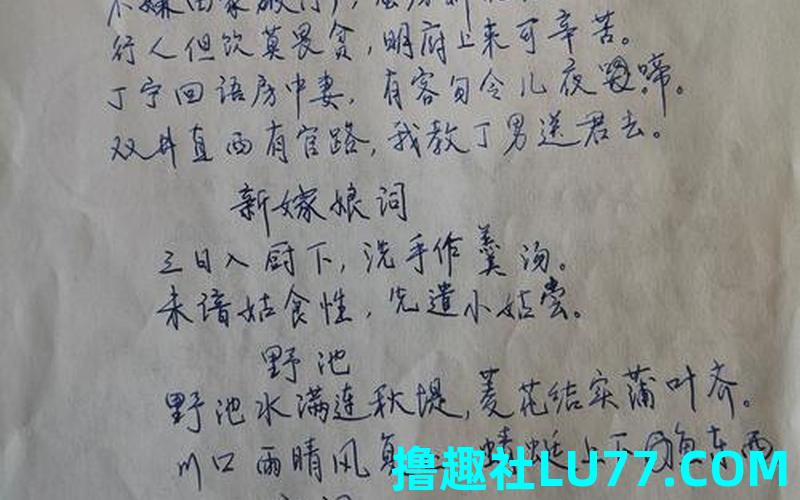 行人但饮莫畏贫,明府上来可辛苦。
丁宁回语房中妻,有客勿令儿夜啼。
双井直西有官路,我教丁男送君去。
新嫁娘词
三日入厨下,洗手作羹汤。
未谙姑食性,先遣小姑尝。
野池
野池水满连秋堤,菱花结实蒲叶齐。
川口雨晴风复 蜻蜓上下 东西
撸趣社LU77.COM